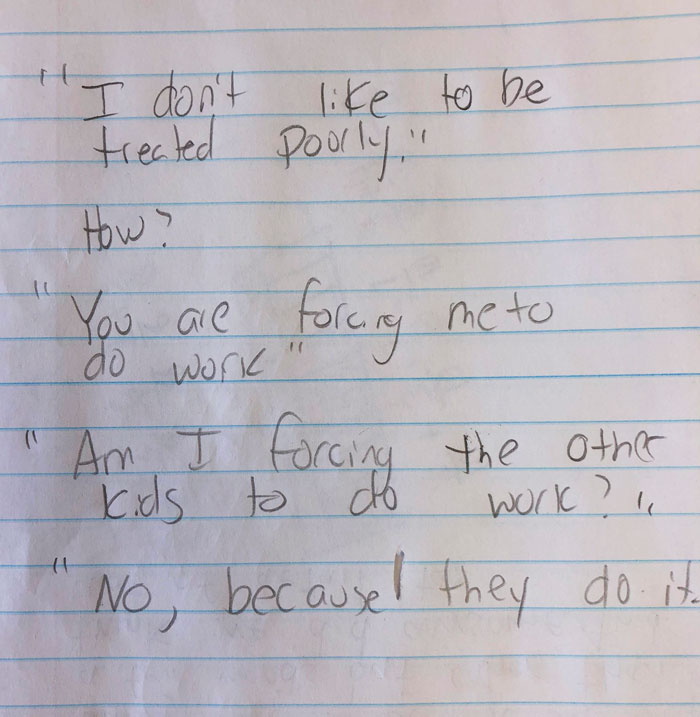 "I don't like to be
treated poorly."
How?
"You are forcing me to
do work"
"Am I forcing the other
kids to do work?"
"No, because they do it.